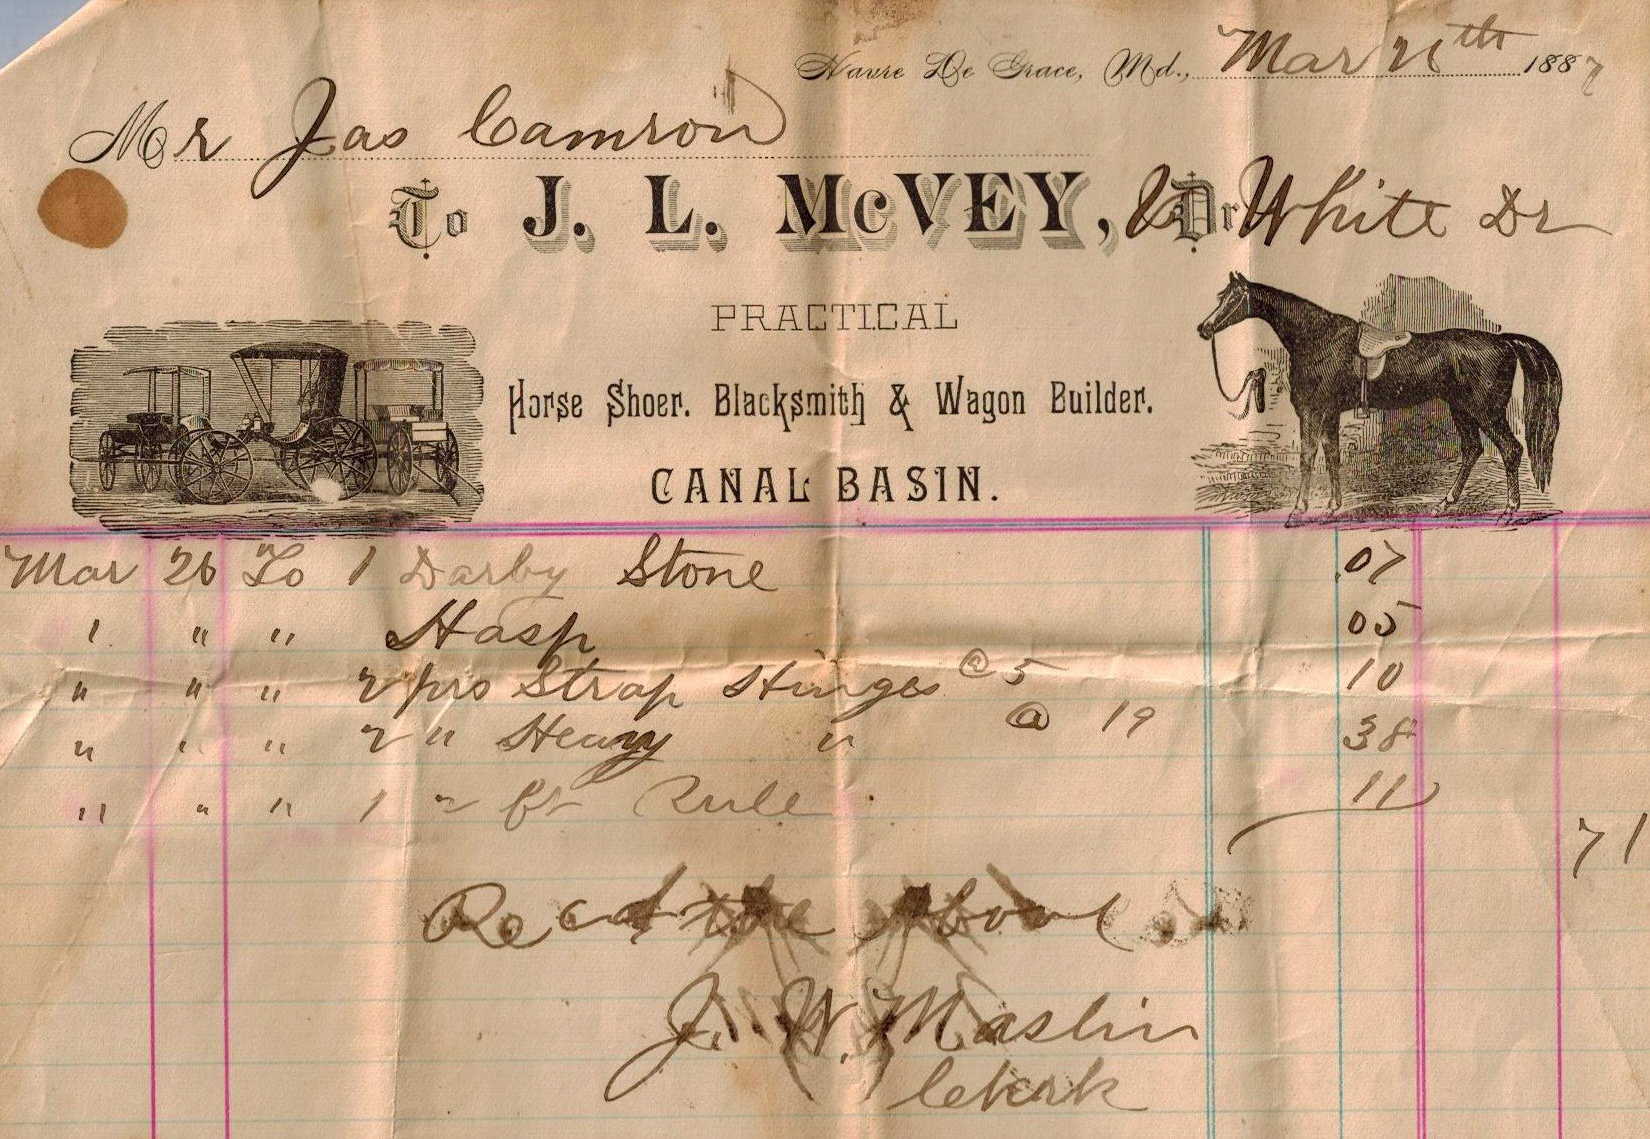 Havre De Grace, Md., Mar 26th 1887
Mr Jas Camron
To J. L. McVEY, & White Dr
PRACTICAL
Horse Shoer. Blacksmith & Wagon Builder.
CANAL BASIN.
Mar 26 To 1 Darby Stone .07
1 " " Hasp 05
" " " 2 prs Strap Hinges @ 5 10
" " " 2 " Heavy " @ 19 38
" " " 1 2 ft Rule 11
71
Recd the above
J. W. Maslin
Clerk